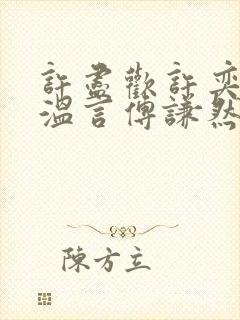 許盡歡許奕
溫言傅謙然
陳方立